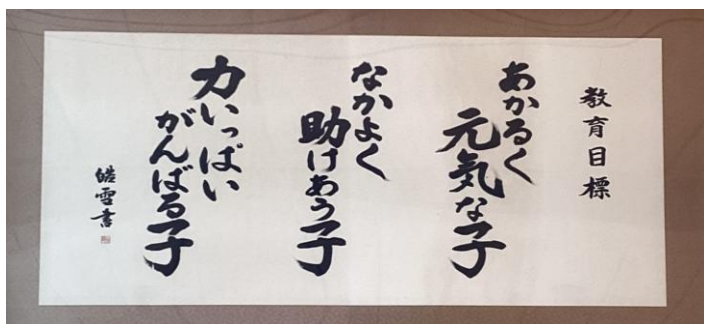 教育目標
あかるく
元気な子
なかよく
助けあう子
力いっぱい
がんばる子
皓雪書